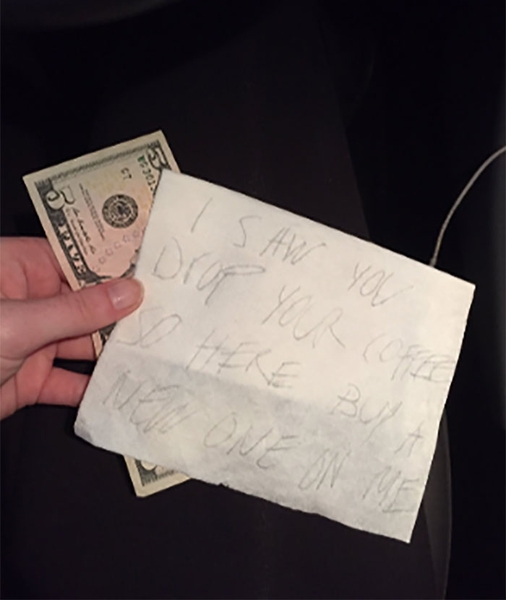 I SAW YOU
DROP YOUR COFFEE
SO HERE BUY A
NEW ONE ON ME
FIVE
5
G7